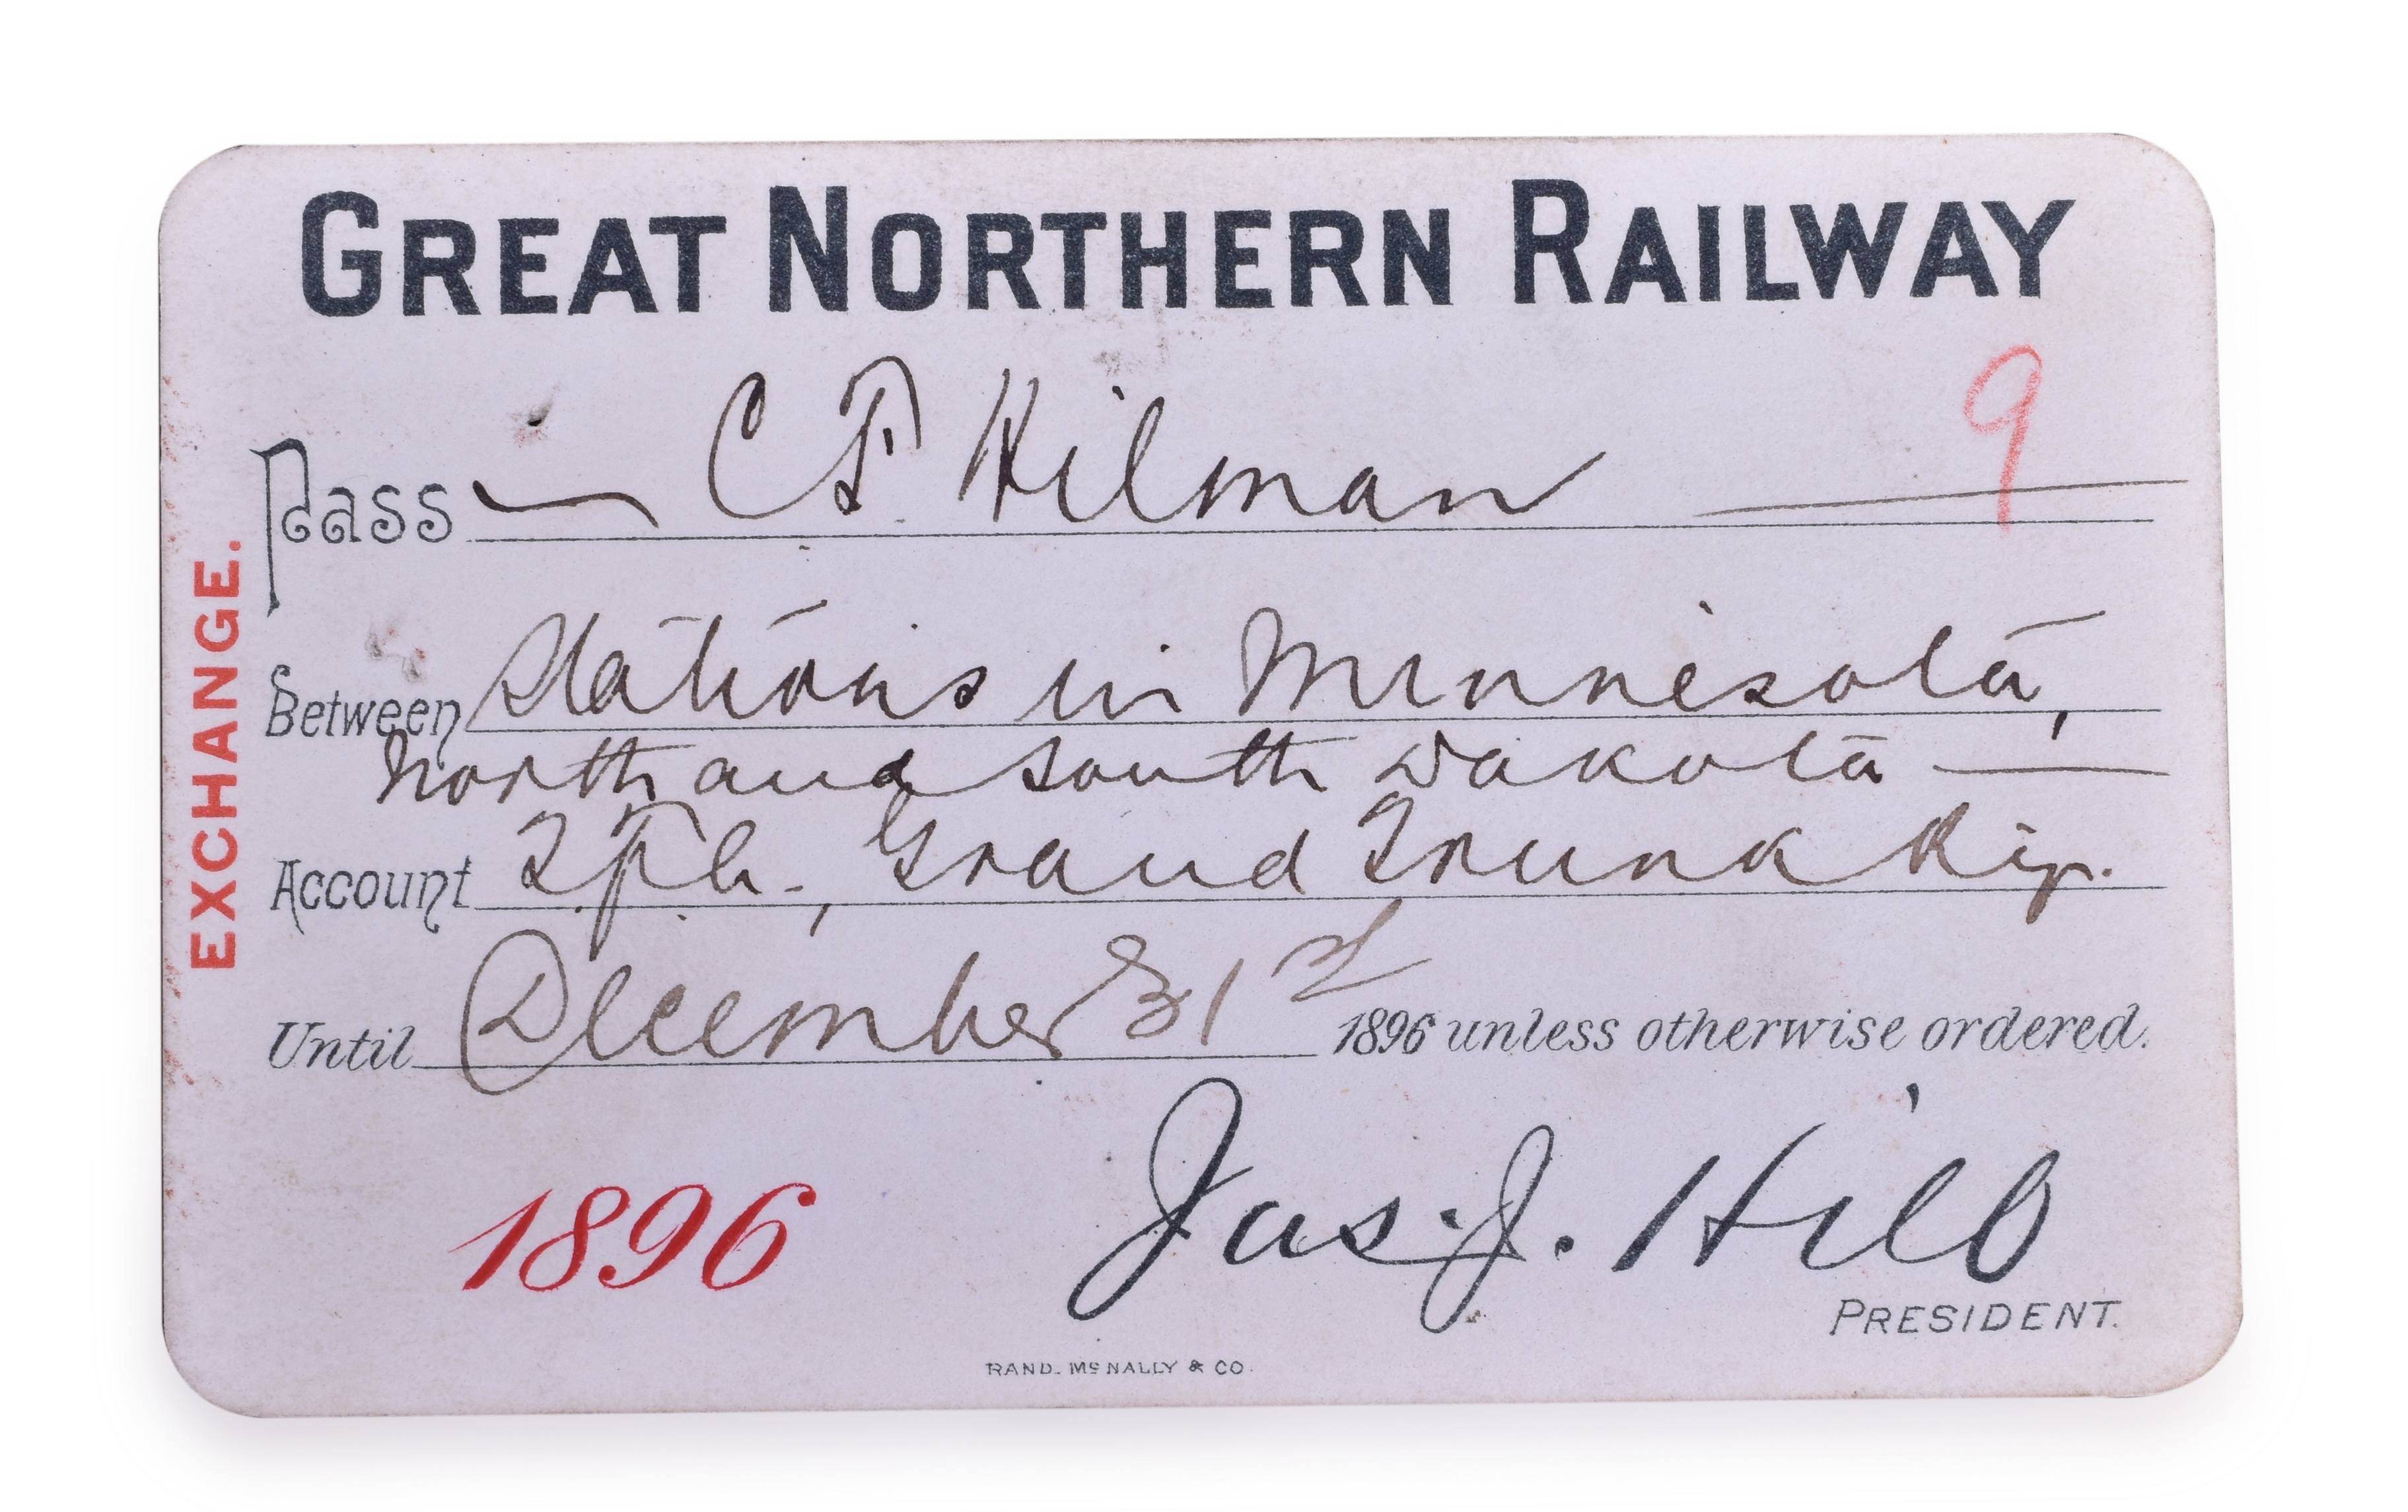 GREAT NORTHERN RAILWAY
9
Pass C F Hilman
EXCHANGE.
Between Stations in Minnesota,
North and South Dakota
Account Grand Trunk Ry.
Until December 31st 1896 unless otherwise ordered.
1896
Jas. J. Hill
PRESIDENT.
RAND. McNALLY & CO.